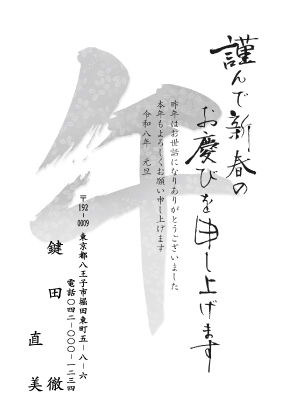 謹んで新春の
お慶びを申し上げます
昨年はお世話になりありがとうございました
本年もよろしくお願い申し上げます
令和八年 元旦
午
〒192-0009
東京都八王子市堀田東町五-八-六
電話〇四二-〇〇〇-一二三四
鍵田 徹
直美